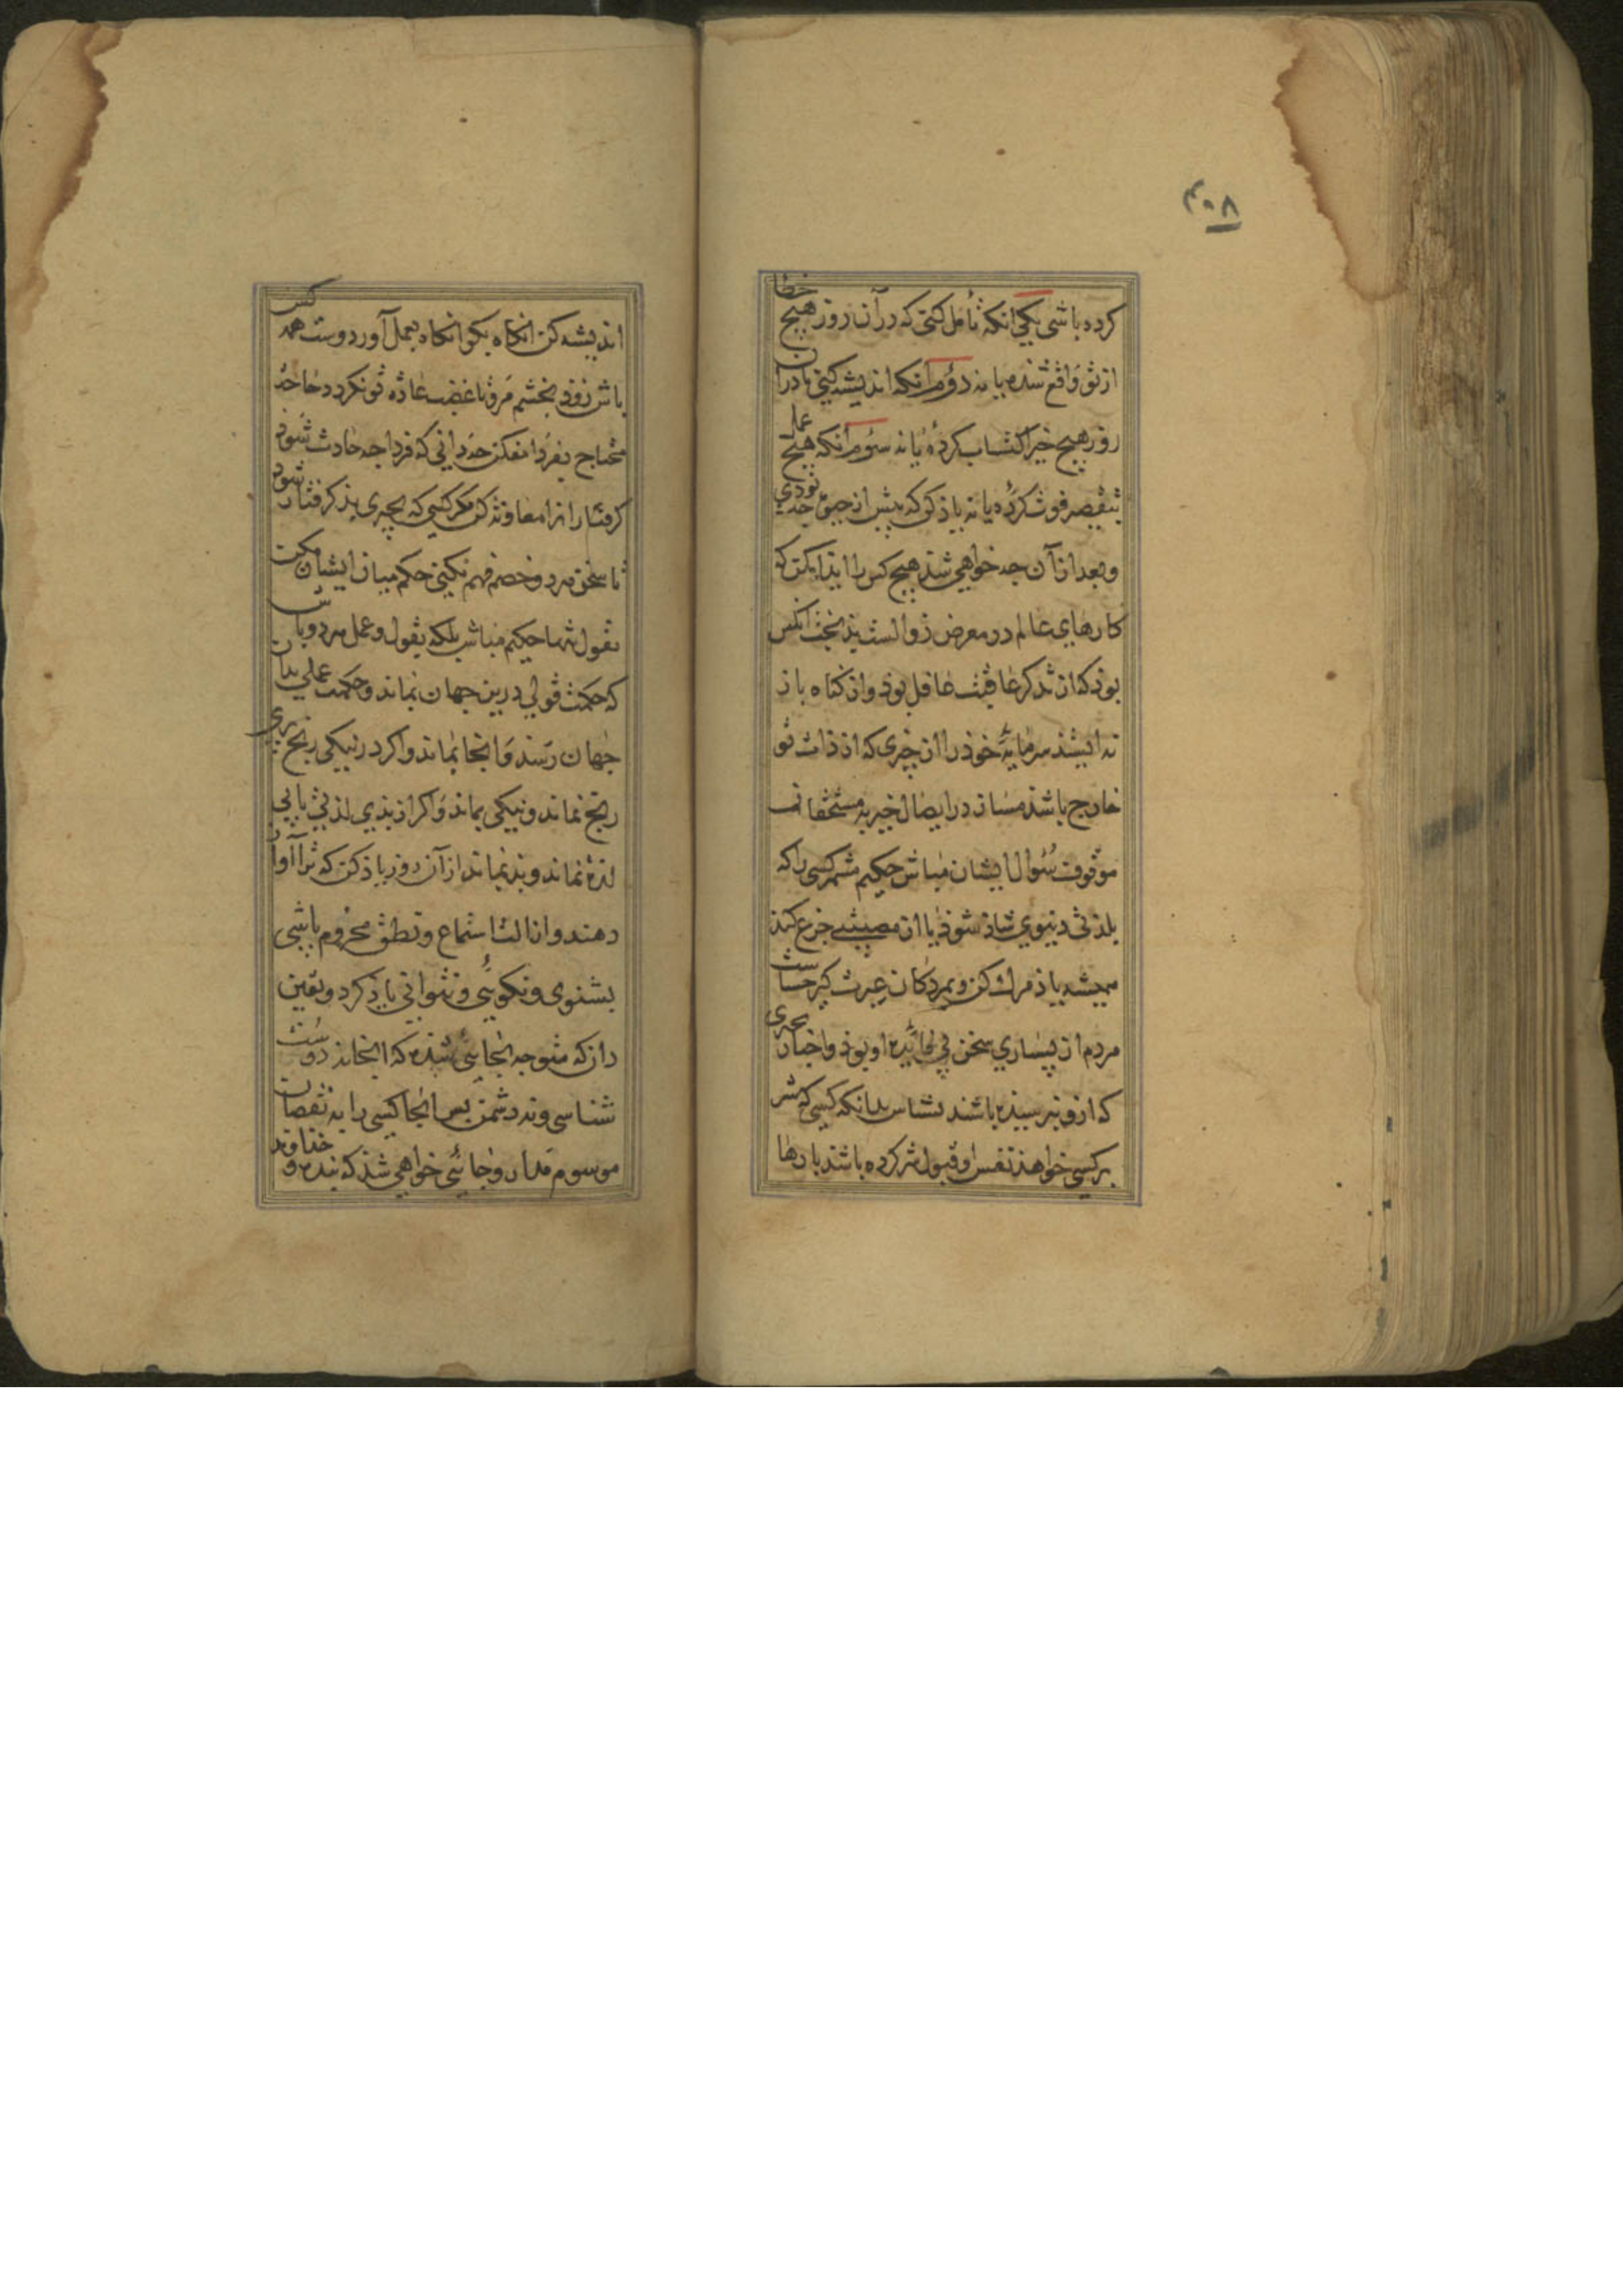 ۴۰۸
کرده باشی یکی انکه تأمل کنی که در آن روز هیچ خطا
از تو واقع شده یا نه دوم انکه اندیشه کنی تا در آن
روز هیچ خیر اکتساب کرده یا نه سوم انکه هیچ عمل
بتقصیر فوت کرده یا نه یاذ کن که پیش ازین چه بودی
و بعد از آن چه خواهی شد هیچ کس را ایذا مکن که
کارهای عالم در معرض زوالست بدبخت انکس
بوذ که از تذکر عاقبت غافل بوذ و از کناه باز
نه ایستذ سرمایهٔ خوذ را از چیزی که از ذات تو
خارج باشد مساز در ایصال خیر به مستحقان
موقوف سئوال ایشان مباش حکیم مشمر کسی را که
بلذتی دنیوی شاذ شوذ یا از مصیبتی جزع کند
همیشه یاذ مرک کن و بمردکان عبرت کیر خساست
مردم از بسیاری سخن بی فایدهٔ او بوذ و اخبار بچیزی
که ازو نپرسیده باشند بشناس بدانکه کسی که شر
بر کسی خواهذ نفس او قبول شر کرده باشد بارها
اندیشه کن انکاه بکو انکاه بعمل آور دوست همه کس
باش زوذ بخشم مرو تا غضب عاده تو نکردد حاجة
محتاج بفردا مفکن چه دانی که فردا چه حادث شوذ
کرفتار را از معاونه کن مکر کسی که بچیزی بد کرفتار شوذ
تا سخن هر دو خصم فهم نکنی حکم میان ایشان مکن
بقول تنها حکیم مباش بلکه بقول و عمل هر دو باش
که حکمت قولی درین جهان نماند و حکمت عملی بدان
جهان رسد و انجا بماند و اکر در نیکی رنج بری
رنج نماند و نیکی بماند و اکر از بدی لذتی یابی
لذة نماند و بد بماند از آن روز یاذ کن که ترا آواز
دهند و از الت استماع و نطق محروم باشی
بشنوی و نکویی و نتوانی یاذ کرد و یقین
دان که متوجه بجایی شده که انجا نه دوست
شناسی و نه دشمن پس انجا کسی را به نقصان
موسوم مدار و جائی خواهی شذ که بنده و خذاوند